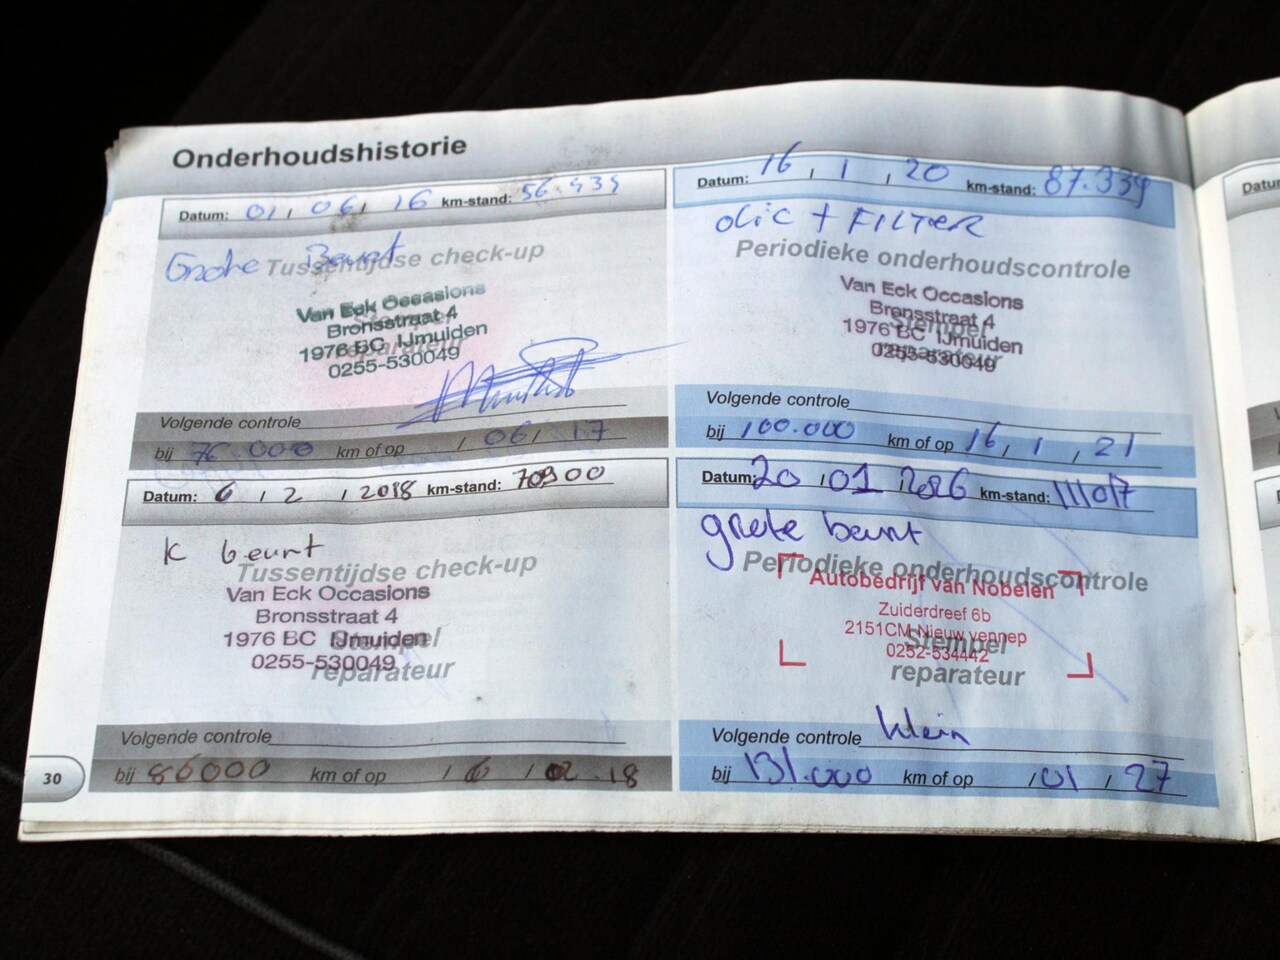 Onderhoudshistorie
Datum: 01 / 06 / 16 km-stand: 56.439
Grote Beurt
Tussentijdse check-up
Van Eck Occasions
Bronsstraat 4
1976 BC IJmuiden
0255-530049
Stempel
reparateur
Volgende controle
bij 76.000 km of op / 06 / 17
Datum: 6 / 2 / 2018 km-stand: 70900
K beurt
Tussentijdse check-up
Van Eck Occasions
Bronsstraat 4
1976 BC IJmuiden
0255-530049
Stempel
reparateur
Volgende controle
bij 86000 km of op / 6 / 02 18
30
Datum: 16 / 1 / 20 km-stand: 87.339
olie + FILTER
Periodieke onderhoudscontrole
Van Eck Occasions
Bronsstraat 4
1976 BC IJmuiden
0255-530049
Stempel
reparateur
Volgende controle
bij 100.000 km of op 16 / 1 / 21
Datum: 20 / 01 / 2026 km-stand: 111017
grote beurt
Periodieke onderhoudscontrole
Autobedrijf van Nobelen
Zuiderdreef 6b
2151CM Nieuw vennep
0252-534442
Stempel
reparateur
Volgende controle klein
bij 131.000 km of op / 01 / 27
Datu